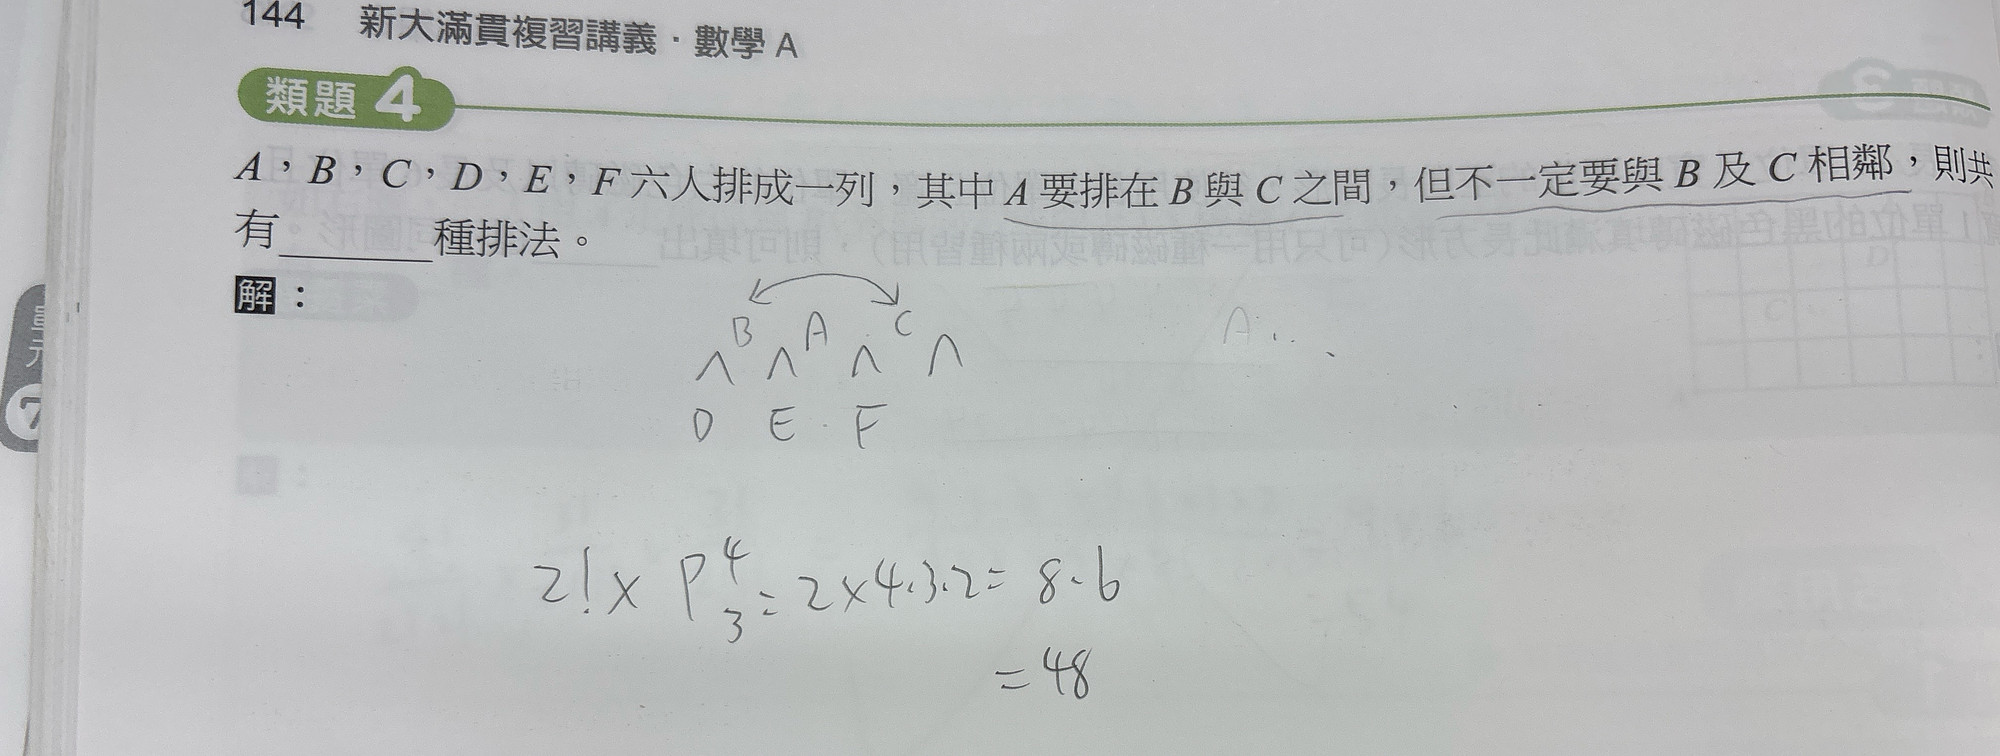 144 新大滿貫複習講義·數學 A
類題 4
A,B,C,D,E,F 六人排成一列,其中 A 要排在 B 與 C 之間,但不一定要與 B 及 C 相鄰,則共
有______種排法。
解:
B A C
∧ ∧ ∧ ∧
D E F
2! × P⁴₃ = 2×4·3·2 = 8·6
= 48
單元
7